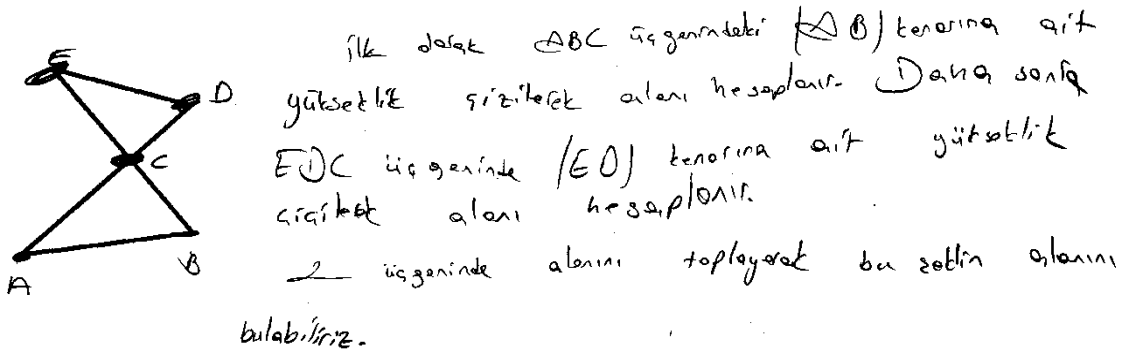 ilk olarak ABC üçgenindeki |AB| kenarına ait
E
D
yükseklik çizilerek alanı hesaplanır. Daha sonra
C
EDC üçgeninde |ED| kenarına ait yükseklik
çizilerek alanı hesaplanır.
A
B
2 üçgeninde alanını toplayarak bu şeklin alanını
bulabiliriz.